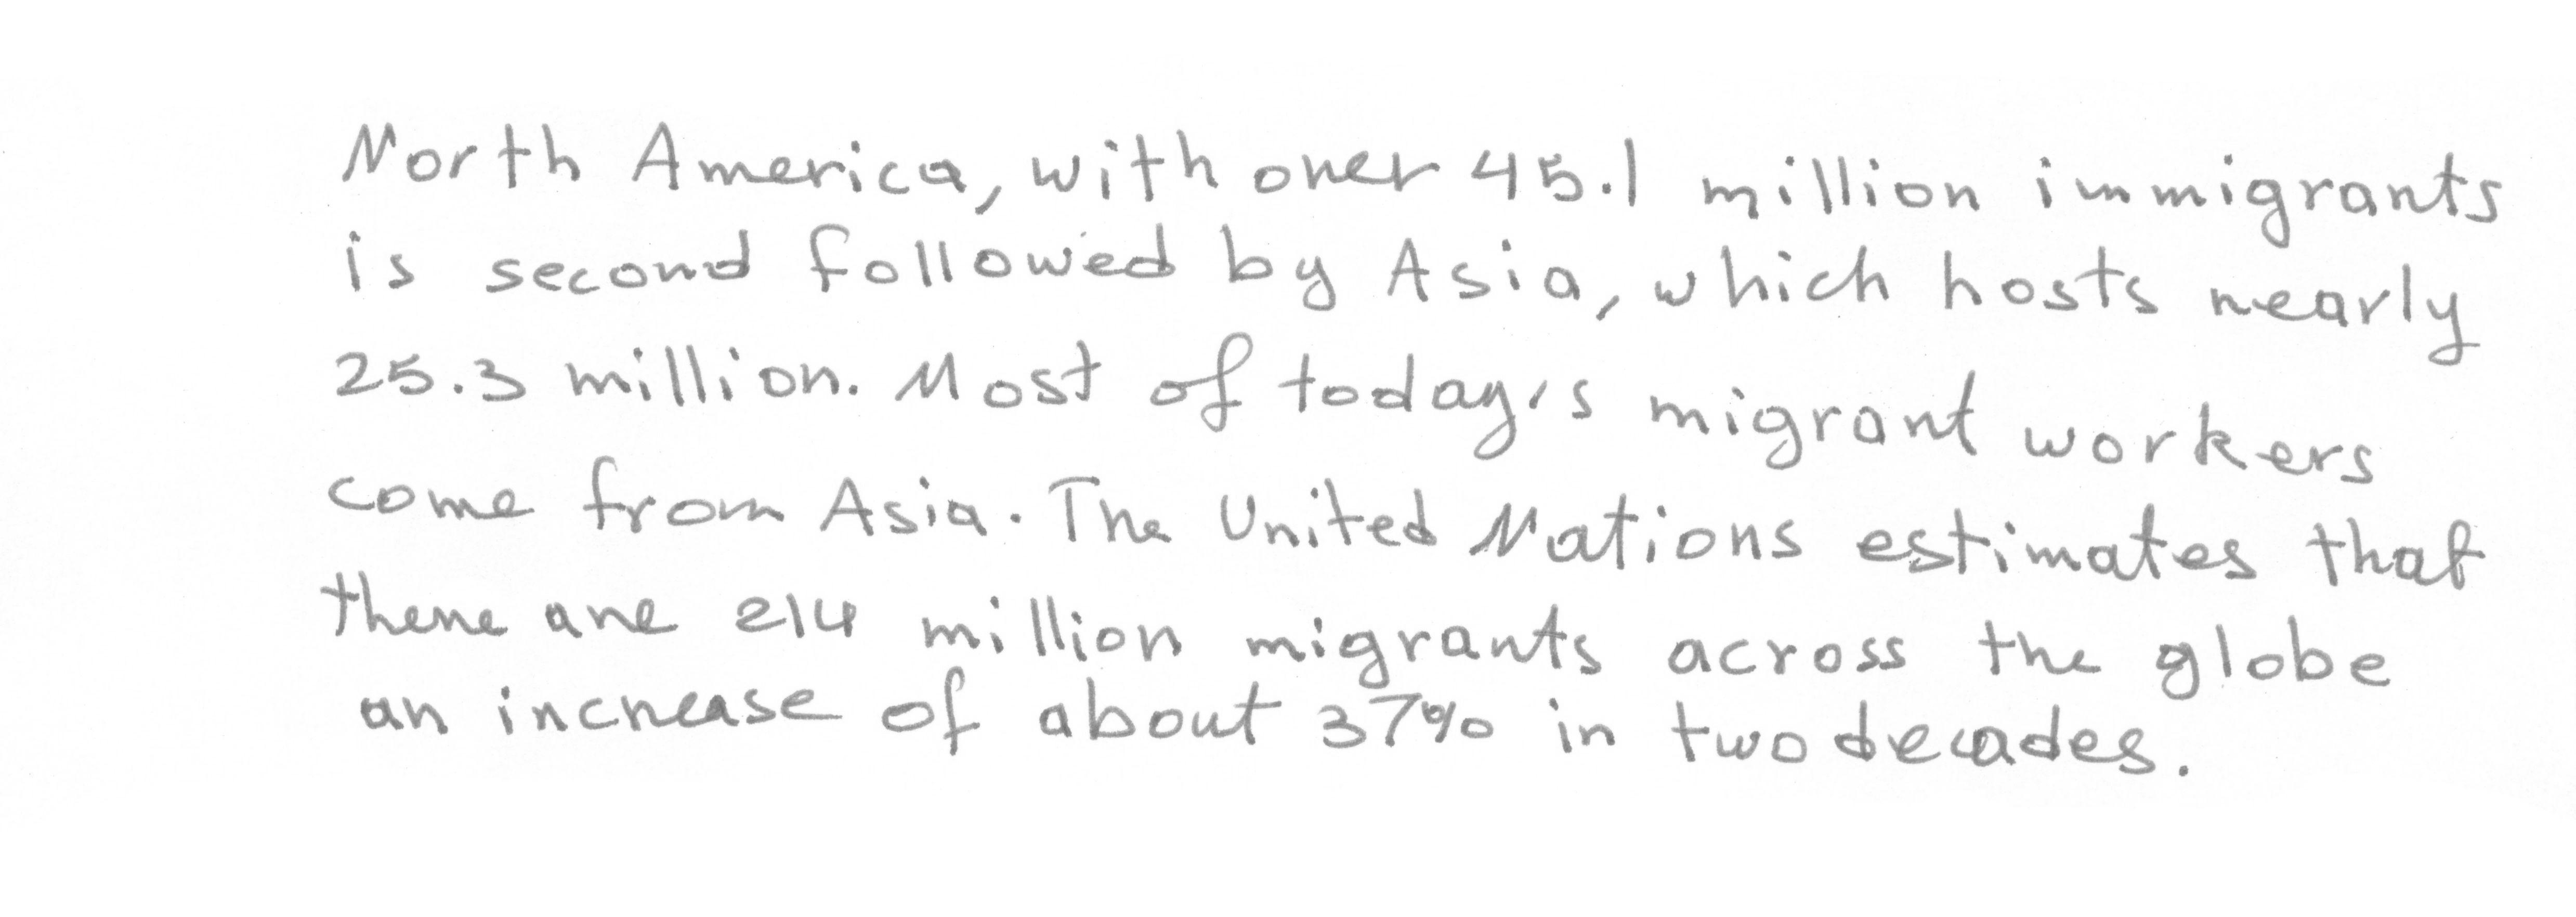 North America, with over 45.1 million immigrants
is second followed by Asia, which hosts nearly
25.3 million. Most of today's migrant workers
come from Asia. The United Nations estimates that
there are 214 million migrants across the globe
an increase of about 37% in two decades.